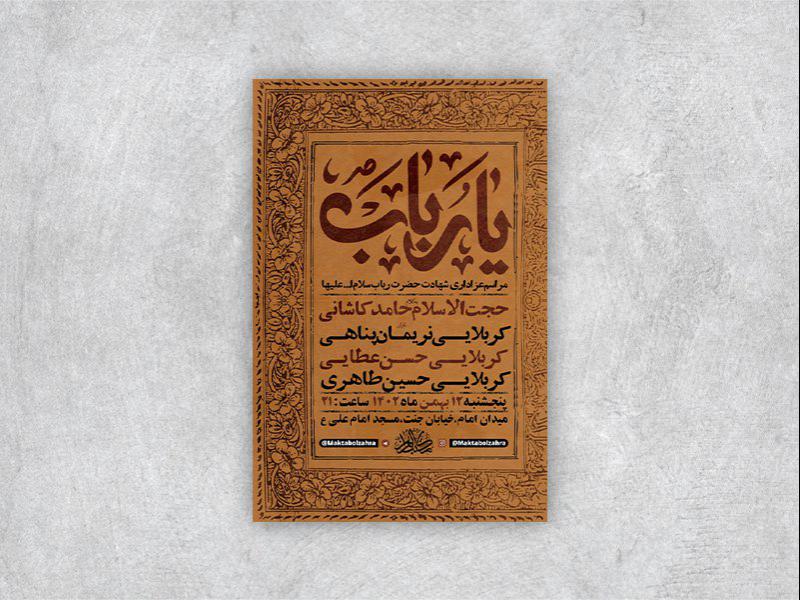 یا رباب
مراسم عزاداری شهادت حضرت رباب سلام الله علیها
حجت الاسلام حامد کاشانی
کربلایی نریمان پناهی
کربلایی حسن عطایی
کربلایی حسین طاهری
پنجشنبه ۱۲ بهمن ماه ۱۴۰۲ ساعت: ۲۱
میدان امام، خیابان جنت، مسجد امام علی ع
@Maktabolzahra @Maktabolzahra